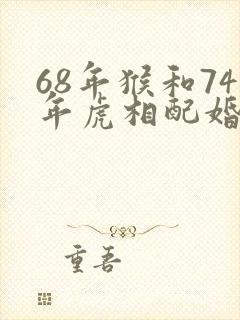 68年猴和74
年虎相配婚
重吾